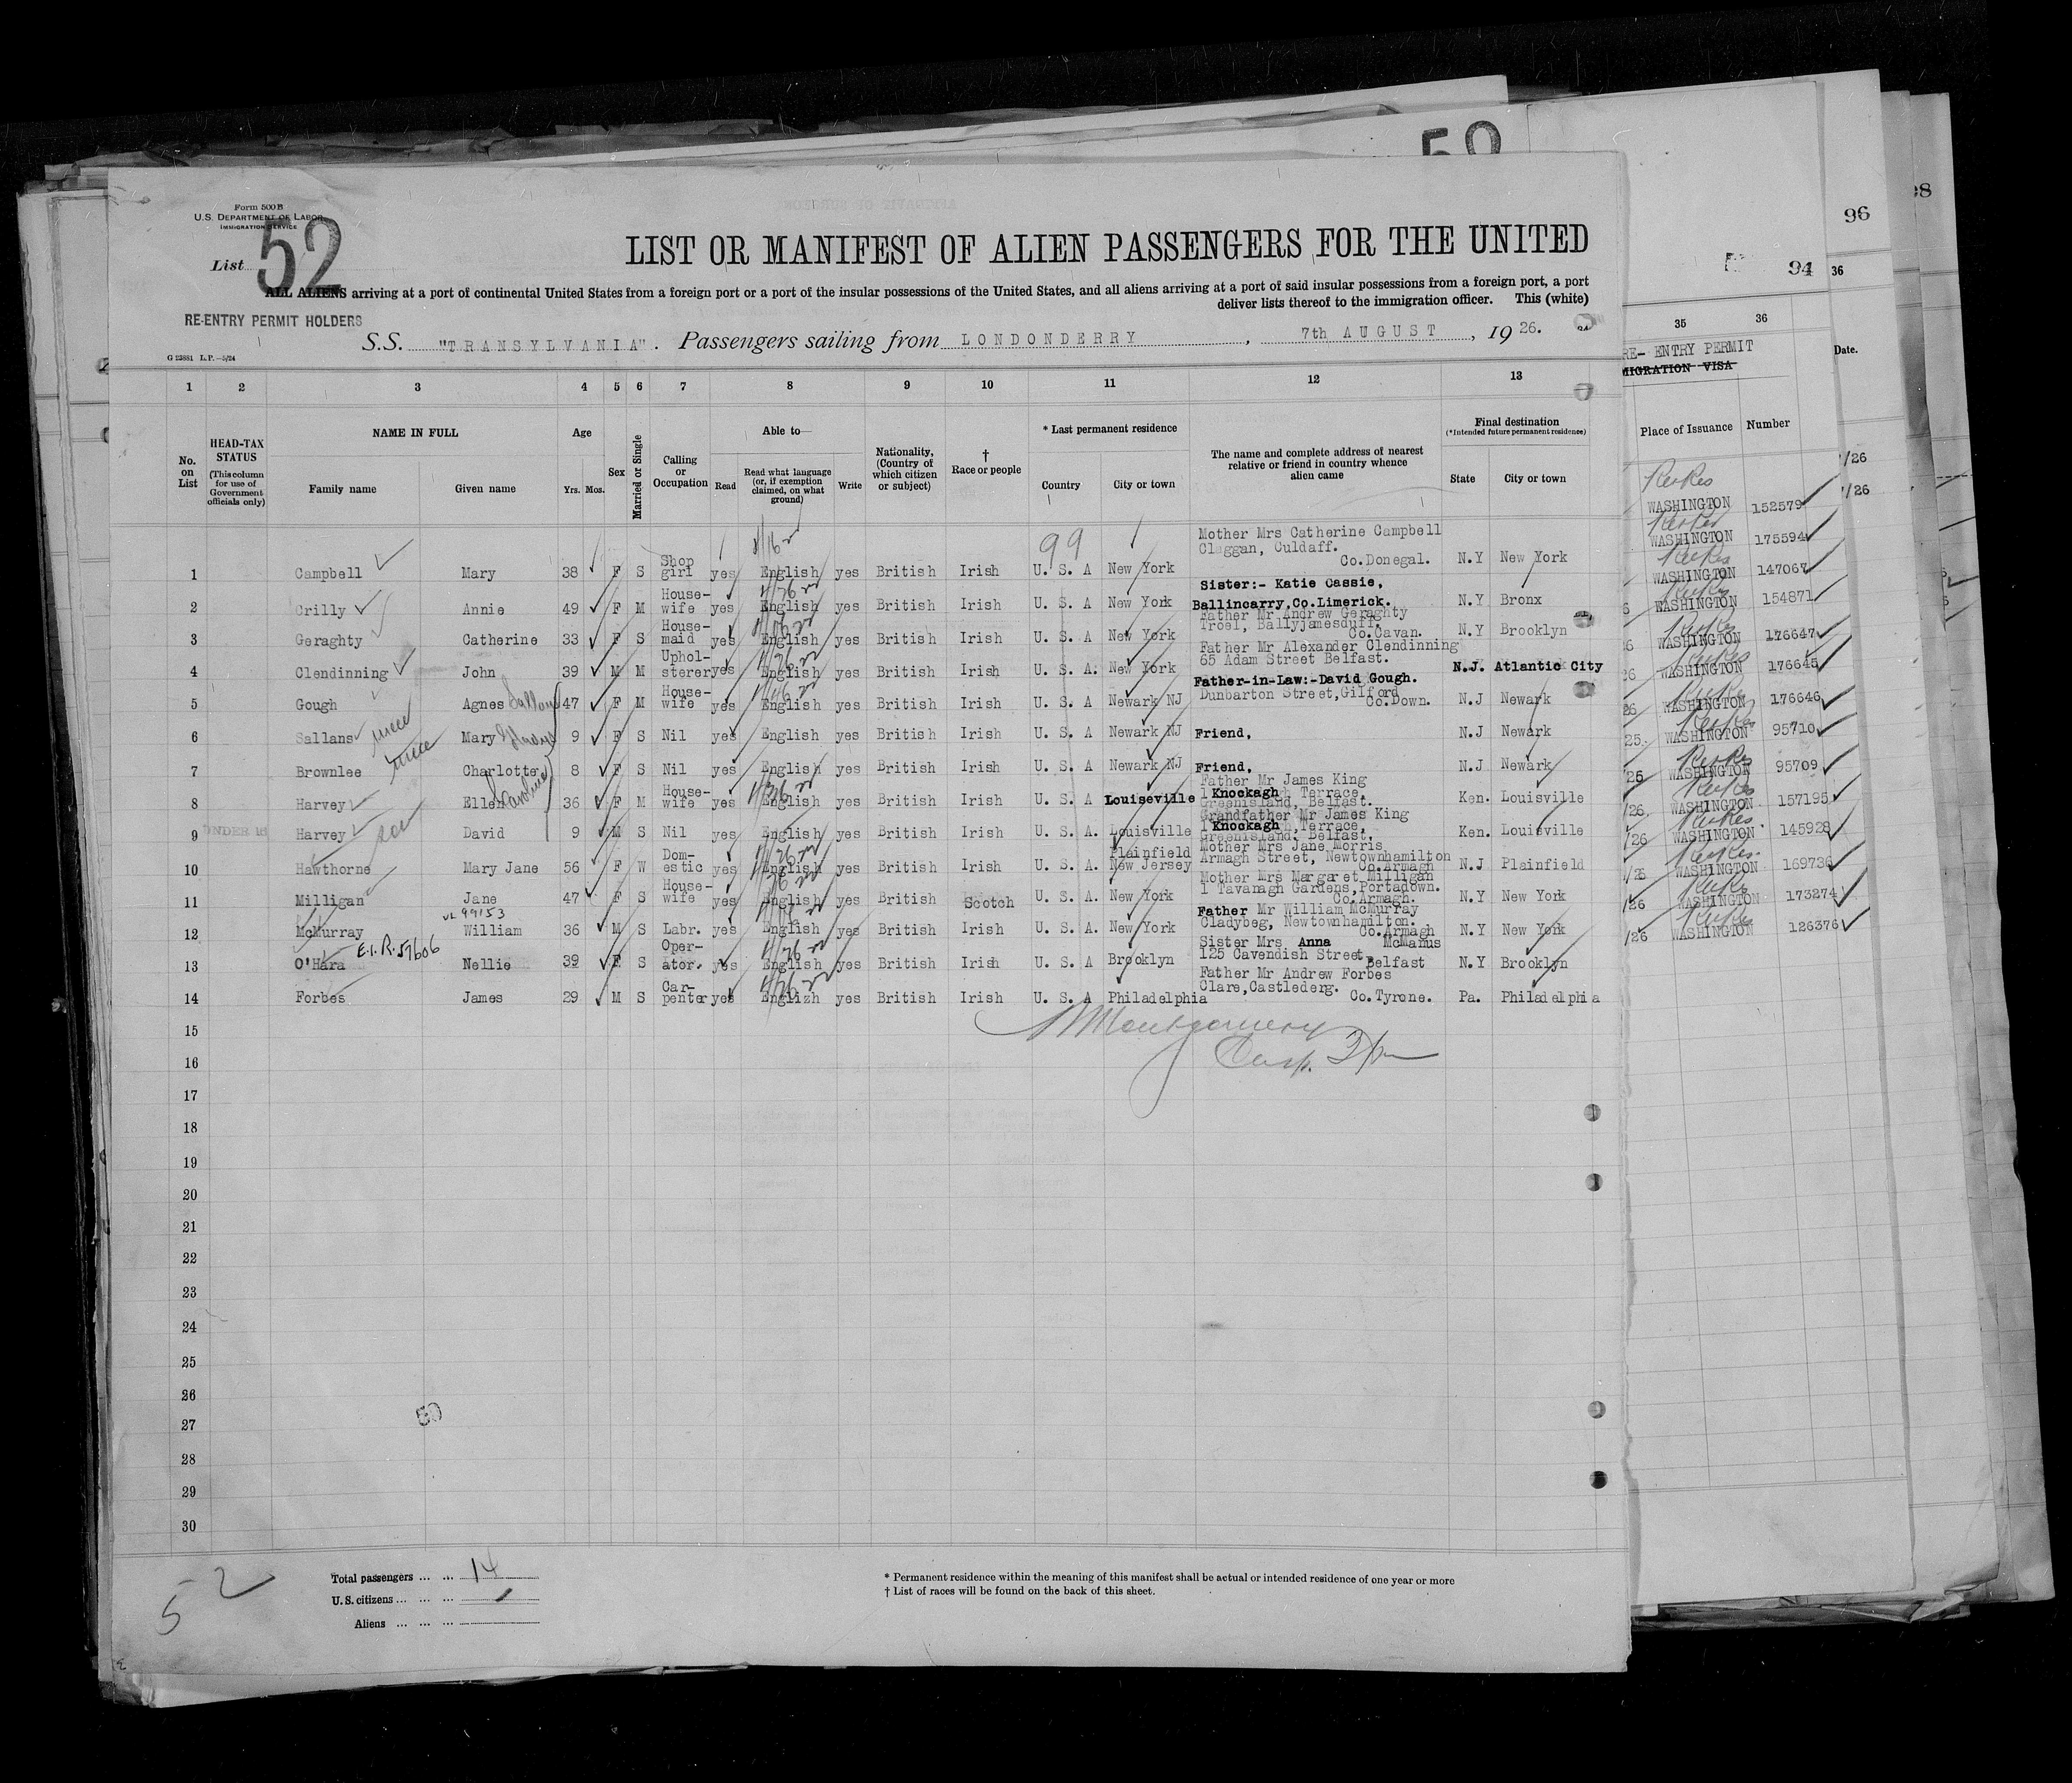 Form 500 B
U.S. DEPARTMENT OF LABOR
IMMIGRATION SERVICE
List 52
LIST OR MANIFEST OF ALIEN PASSENGERS FOR THE UNITED
ALL ALIENS arriving at a port of continental United States from a foreign port or a port of the insular possessions of the United States, and all aliens arriving at a port of said insular possessions from a foreign port, a port
deliver lists thereof to the immigration officer. This (white)
RE-ENTRY PERMIT HOLDERS
S.S. "TRANSYLVANIA". Passengers sailing from LONDONDERRY, 7th AUGUST, 1926.
G 23881 L.P.—5/24
1 2 3 4 5 6 7 8 9 10 11 12 13
No. on List
HEAD-TAX STATUS (This column for use of Government officials only)
NAME IN FULL
Family name Given name
Age Yrs. Mos.
Sex
Married or Single
Calling or Occupation
Able to—
Read Read what language (or, if exemption claimed, on what ground) Write
Nationality, (Country of which citizen or subject)
† Race or people
* Last permanent residence
Country City or town
The name and complete address of nearest relative or friend in country whence alien came
Final destination (*Intended future permanent residence)
State City or town
99
1 Campbell Mary 38 F S Shop girl yes English yes British Irish U. S. A New York Mother Mrs Catherine Campbell Cluggan, Culdaff. Co.Donegal. N.Y New York
2 Crilly Annie 49 F M House-wife yes English yes British Irish U. S. A New York Sister:- Katie Cassie, Ballincarry,Co.Limerick. N.Y Bronx
3 Geraghty Catherine 33 F S House-maid yes English yes British Irish U. S. A New York Father Mr Andrew Geraghty Troel, Ballyjamesduff, Co.Cavan. N.Y Brooklyn
4 Clendinning John 39 M M Uphol-sterer yes English yes British Irish U. S. A. New York Father Mr Alexander Clendinning 65 Adam Street Belfast. N.J. Atlantic City
5 Gough Agnes 47 F M House-wife yes English yes British Irish U. S. A Newark NJ Father-in-Law:-David Gough. Dunbarton Street,Gilford Co.Down. N.J Newark
6 Sallans niece Mary Gladys 9 F S Nil yes English yes British Irish U. S. A Newark NJ Friend, N.J Newark
7 Brownlee niece Charlotte Caroline 8 F S Nil yes English yes British Irish U. S. A Newark NJ Friend, N.J Newark
8 Harvey Ellen 36 F M House-wife yes English yes British Irish U. S. A Louiseville Father Mr James King 1 Knockagh Terrace, Greenisland, Belfast. Ken. Louisville
9 UNDER 16 Harvey son David 9 M S Nil yes English yes British Irish U. S. A. Louisville Grandfather Mr James King 1 Knockagh, Terrace, Greenisland. Belfast. Ken. Louisville
10 Hawthorne Mary Jane 56 F W Dom-estic yes English yes British Irish U. S. A. Plainfield New Jersey Mother Mrs Jane Morris Armagh Street, Newtownhamilton Co.Armagh N.J Plainfield
11 Milligan Jane 47 F S House-wife yes English yes British Scotch U. S. A. New York Mother Mrs Margaret Milligan 1 Tavanagh Gardens,Portadown. Co.Armagh. N.Y New York
VL 99153
12 McMurray William 36 M S Labr. yes English yes British Irish U. S. A. New York Father Mr William McMurray Cladybeg, Newtownhamilton. Co.Armagh N.Y New York
E.I.R. 57606
13 O'Hara Nellie 39 F S Oper-ator. yes English yes British Irish U. S. A Brooklyn Sister Mrs Anna McManus 125 Cavendish Street, Belfast N.Y Brooklyn
14 Forbes James 29 M S Car-penter yes Englizh yes British Irish U. S. A Philadelphia Father Mr Andrew Forbes Clare,Castlederg. Co.Tyrone. Pa. Philadelphia
15 Montgomery
16
17
18
19
20
21
22
23
24
25
26
27
28
29
30
50
52
Total passengers ... ... 14
U. S. citizens ... ... ...
Aliens ... ... ...
* Permanent residence within the meaning of this manifest shall be actual or intended residence of one year or more
† List of races will be found on the back of this sheet.
94 36
96
35 36
RE- ENTRY PERMIT
MIGRATION VISA
Date.
Place of Issuance Number
/26
/26
WASHINGTON 152579
WASHINGTON 175594
WASHINGTON 147067
WASHINGTON 154871
WASHINGTON 176647
WASHINGTON 176645
WASHINGTON 176646
WASHINGTON 95710
WASHINGTON 95709
WASHINGTON 157195
WASHINGTON 145928
WASHINGTON 169736
WASHINGTON 173274
WASHINGTON 126376